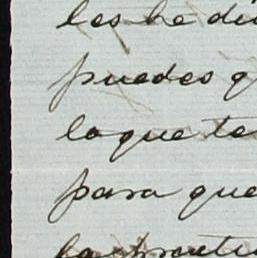 les he di
puedes q
la que te
para que